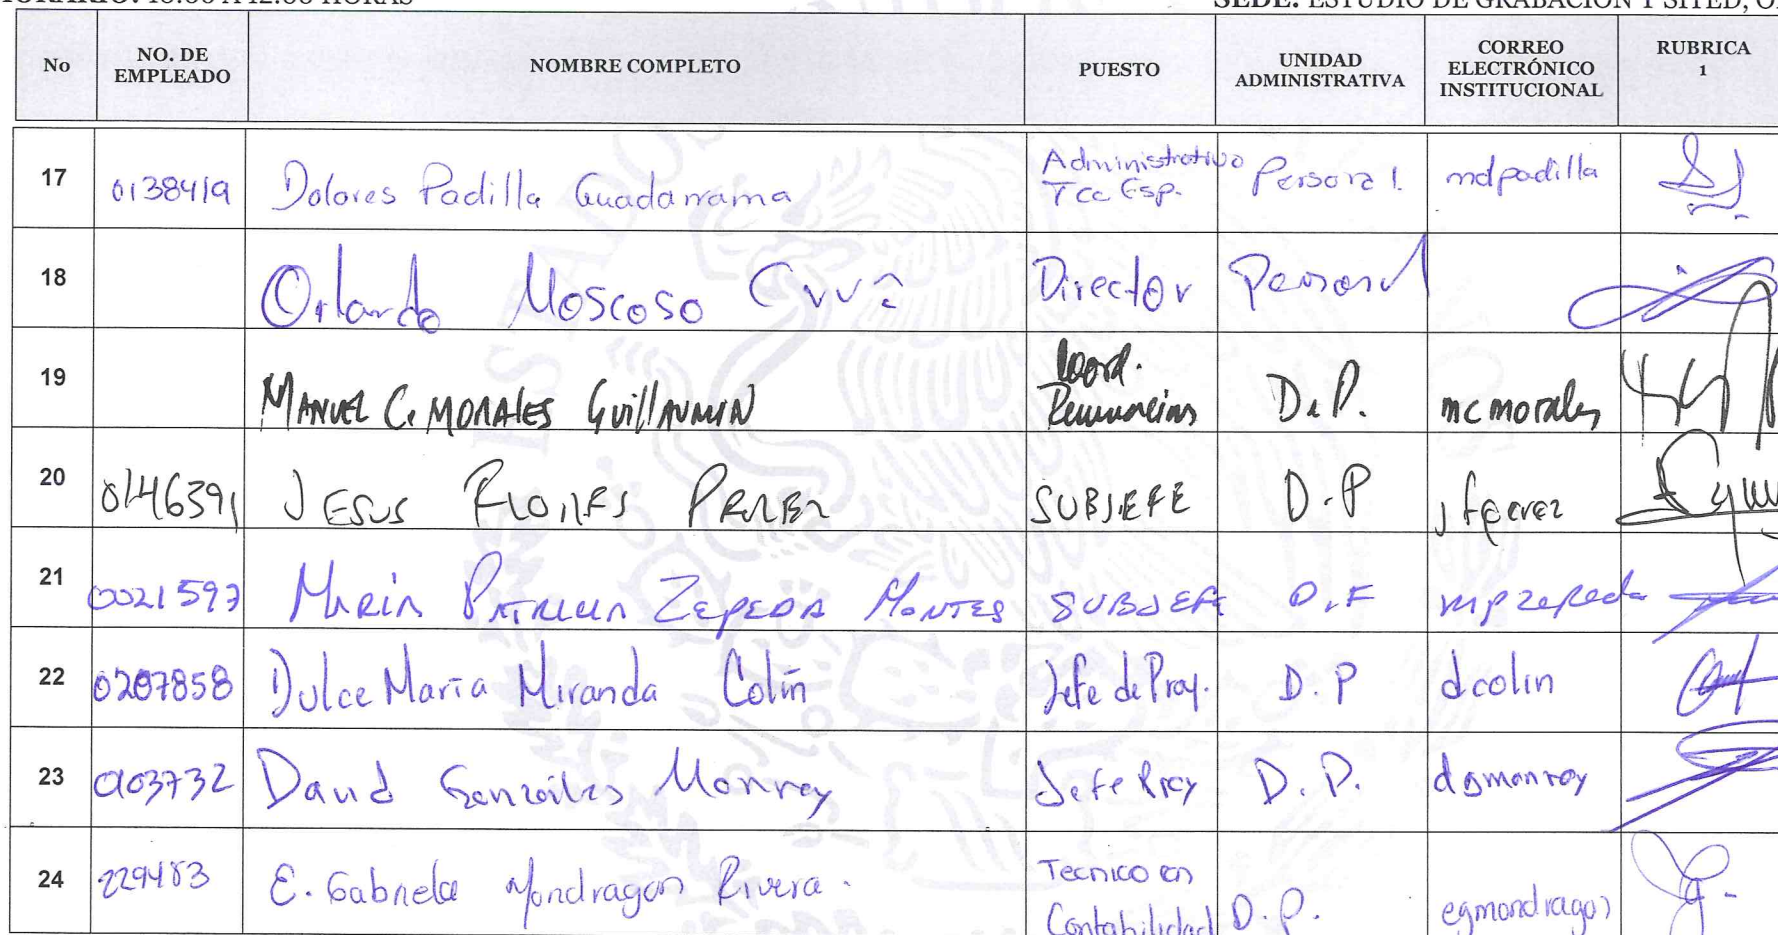 HORARIO: 10:00 A 12:00 HORAS SEDE: ESTUDIO DE GRABACIÓN Y SITED,
No NO. DE EMPLEADO NOMBRE COMPLETO PUESTO UNIDAD ADMINISTRATIVA CORREO ELECTRÓNICO INSTITUCIONAL RUBRICA 1
17 0138419 Dolores Padilla Guadarrama Administrativo Tec Esp. Personal. mdpadilla
18 Orlando Moscoso Cruz Director Personal
19 MANUEL C. MORALES GUILLAUMIN Coord. Renuncias D.P. mcmorales
20 0146391 JESUS FLORES PEREZ SUBJEFE D.P jfperez
21 0021597 MARIA PATRICIA ZEPEDA MONTES SUBJEFE mpzepeda
22 0207858 Dulce María Miranda Colín Jefe de Proy. D.P dcolin
23 David González Monroy Jefe Proy D.P. dgmonroy
24 229483 E. Gabriela Mondragon Rivera. Tecnico en Contabilidad D.P. egmondragon